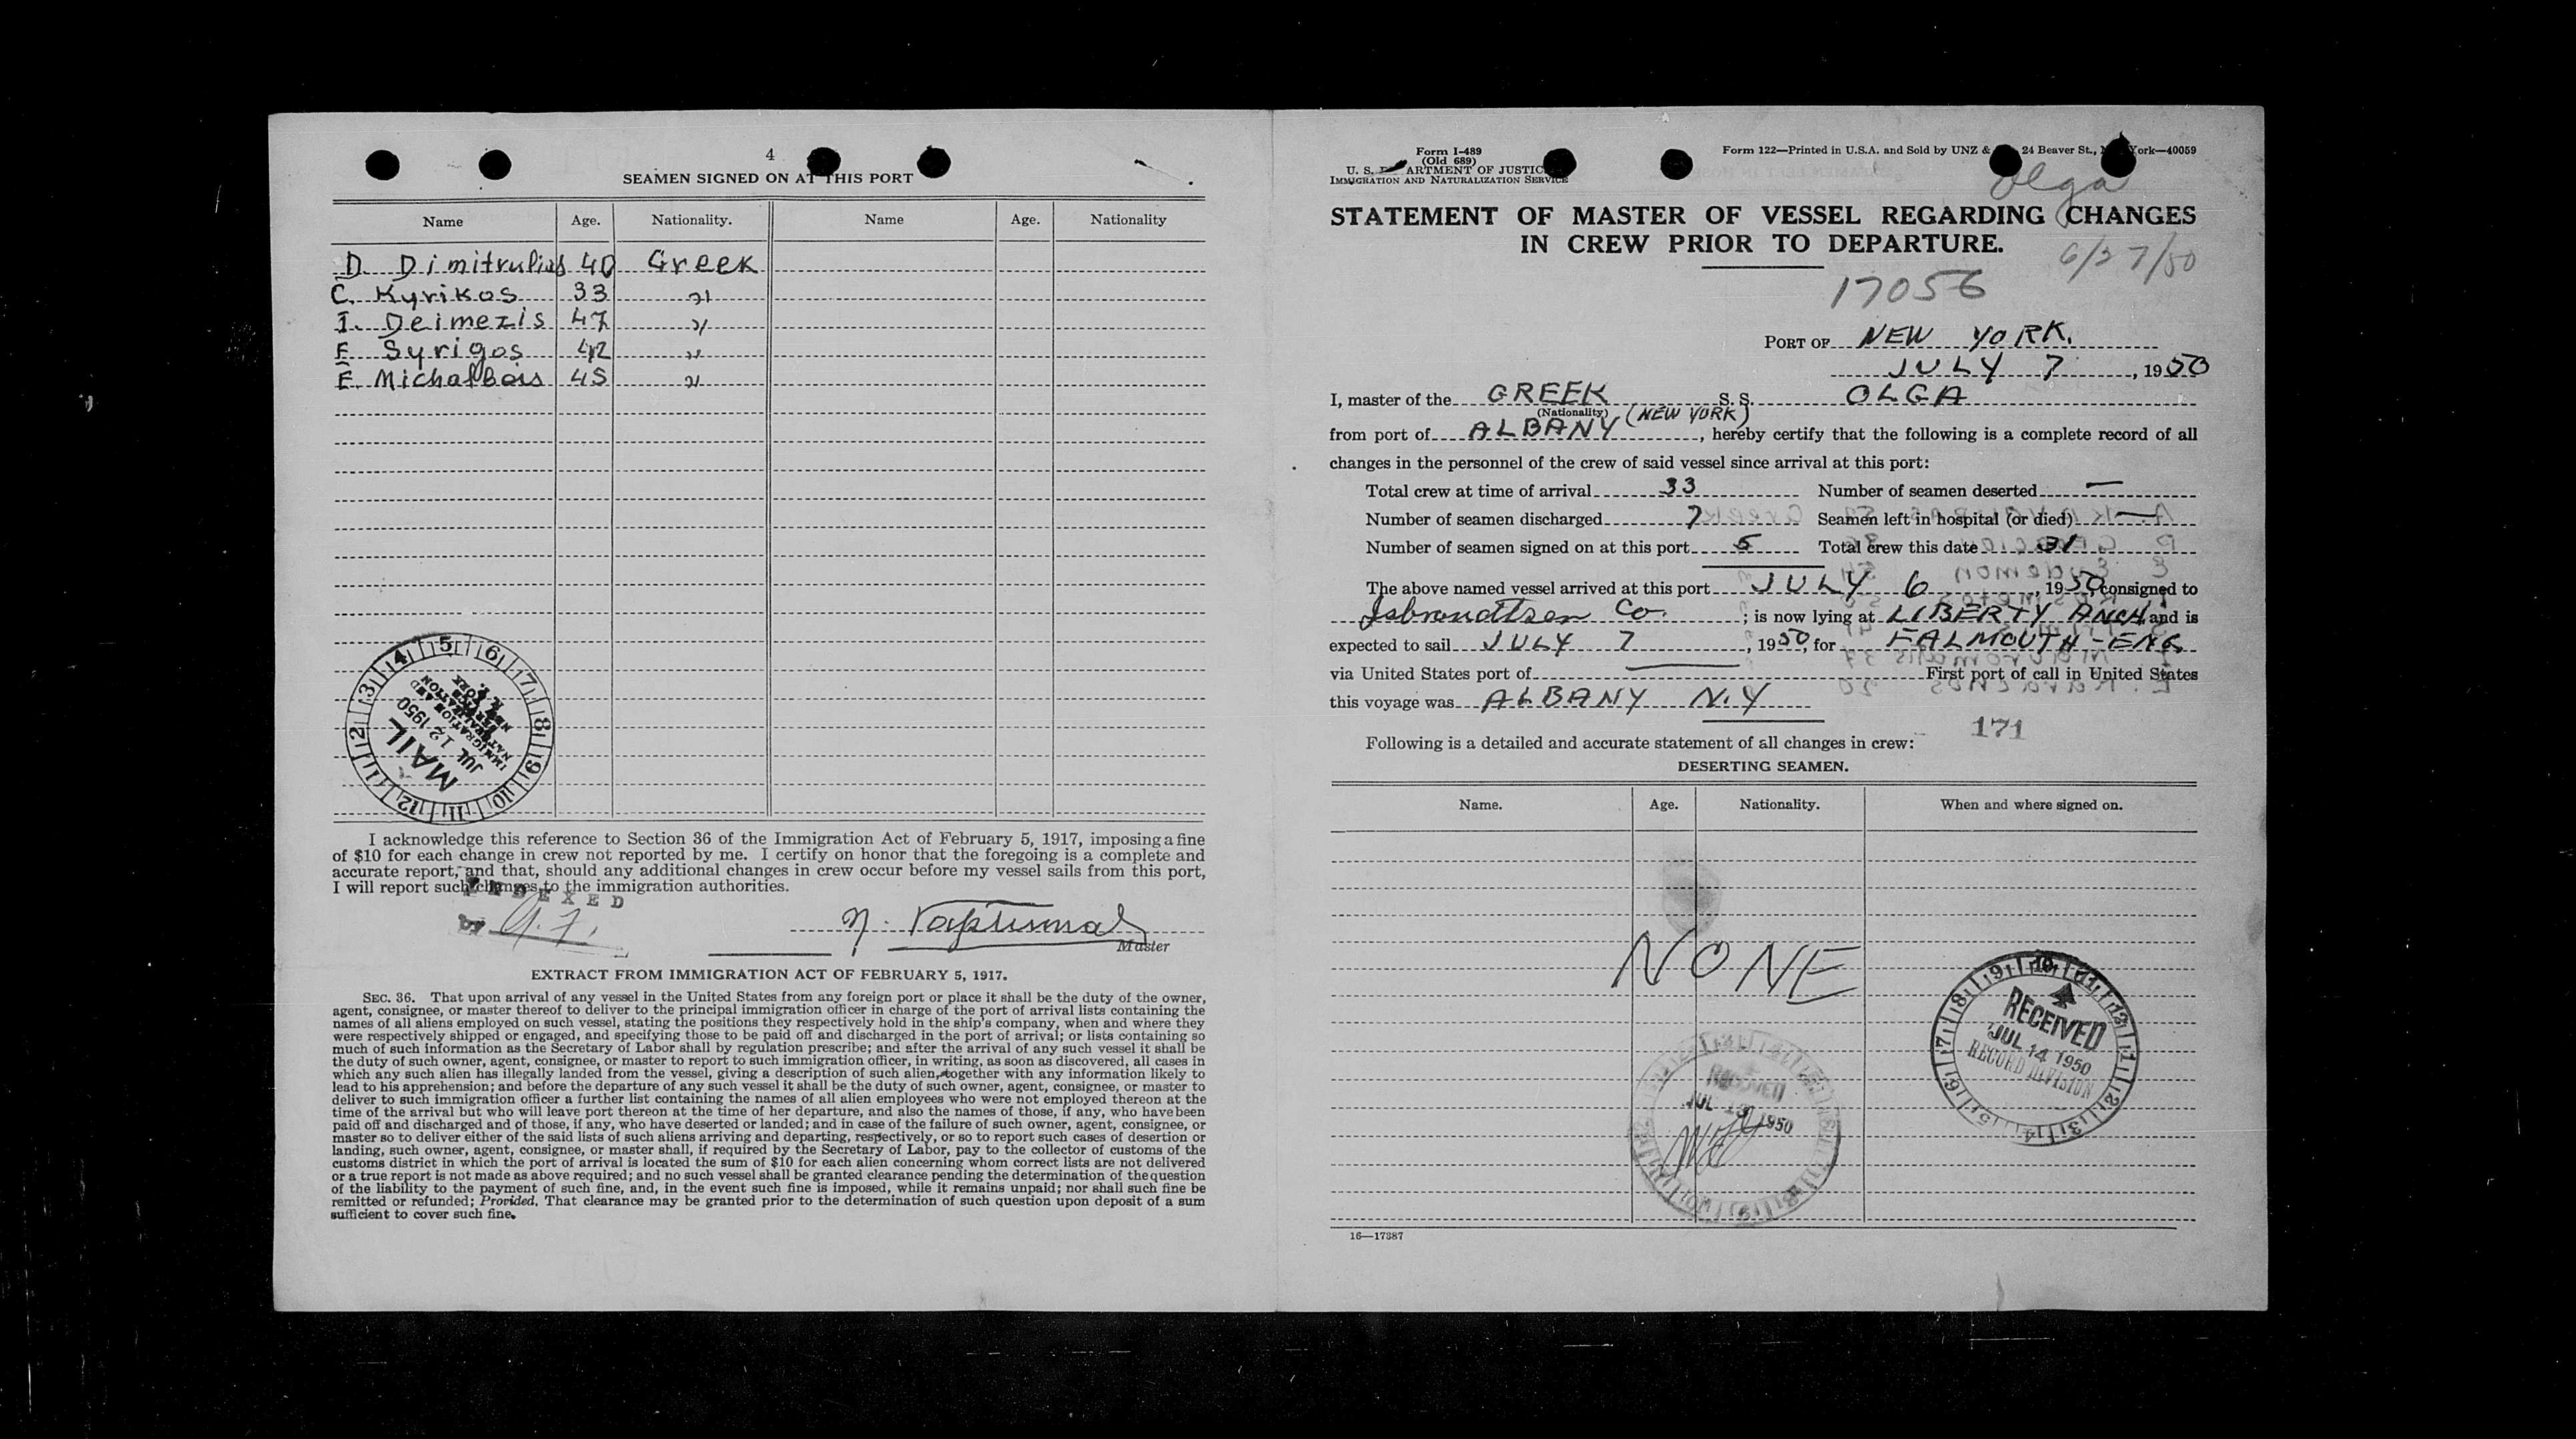 4
SEAMEN SIGNED ON AT THIS PORT
Name Age. Nationality. Name Age. Nationality
D. Dimitrulias 40 Greek
C. Kyrikos 33 "
I. Deimezis 47 "
E. Syrigos 42 "
E. 45 "
MAIL
JUL 12 1950
IMMIGRATION AND
NATURALIZATION
I acknowledge this reference to Section 36 of the Immigration Act of February 5, 1917, imposing a fine
of $10 for each change in crew not reported by me. I certify on honor that the foregoing is a complete and
accurate report, and that, should any additional changes in crew occur before my vessel sails from this port,
I will report such changes to the immigration authorities.
INDEXED
by
Master
EXTRACT FROM IMMIGRATION ACT OF FEBRUARY 5, 1917.
SEC. 36. That upon arrival of any vessel in the United States from any foreign port or place it shall be the duty of the owner,
agent, consignee, or master thereof to deliver to the principal immigration officer in charge of the port of arrival lists containing the
names of all aliens employed on such vessel, stating the positions they respectively hold in the ship's company, when and where they
were respectively shipped or engaged, and specifying those to be paid off and discharged in the port of arrival; or lists containing so
much of such information as the Secretary of Labor shall by regulation prescribe; and after the arrival of any such vessel it shall be
the duty of such owner, agent, consignee, or master to report to such immigration officer, in writing, as soon as discovered, all cases in
which any such alien has illegally landed from the vessel, giving a description of such alien, together with any information likely to
lead to his apprehension; and before the departure of any such vessel it shall be the duty of such owner, agent, consignee, or master to
deliver to such immigration officer a further list containing the names of all alien employees who were not employed thereon at the
time of the arrival but who will leave port thereon at the time of her departure, and also the names of those, if any, who have been
paid off and discharged and of those, if any, who have deserted or landed; and in case of the failure of such owner, agent, consignee, or
master so to deliver either of the said lists of such aliens arriving and departing, respectively, or so to report such cases of desertion or
landing, such owner, agent, consignee, or master shall, if required by the Secretary of Labor, pay to the collector of customs of the
customs district in which the port of arrival is located the sum of $10 for each alien concerning whom correct lists are not delivered
or a true report is not made as above required; and no such vessel shall be granted clearance pending the determination of the question
of the liability to the payment of such fine, and, in the event such fine is imposed, while it remains unpaid; nor shall such fine be
remitted or refunded; Provided, That clearance may be granted prior to the determination of such question upon deposit of a sum
sufficient to cover such fine.
Form I-489
(Old 689)
U. S. DEPARTMENT OF JUSTICE
IMMIGRATION AND NATURALIZATION SERVICE
Form 122—Printed in U.S.A. and Sold by UNZ & 24 Beaver St., New York—40059
Olga
STATEMENT OF MASTER OF VESSEL REGARDING CHANGES
IN CREW PRIOR TO DEPARTURE.
6/27/50
17056
PORT OF NEW YORK.
JULY 7, 1950
I, master of the GREEK S. S. OLGA
(Nationality) (NEW YORK)
from port of ALBANY, hereby certify that the following is a complete record of all
changes in the personnel of the crew of said vessel since arrival at this port:
Total crew at time of arrival 33 Number of seamen deserted —
Number of seamen discharged 7 Seamen left in hospital (or died) —
Number of seamen signed on at this port 5 Total crew this date 31
The above named vessel arrived at this port JULY 6, 1950, consigned to
Isbrandtsen Co. ; is now lying at LIBERTY ANCH. and is
expected to sail JULY 7, 1950, for FALMOUTH - ENG
via United States port of — First port of call in United States
this voyage was ALBANY N.Y
171
Following is a detailed and accurate statement of all changes in crew:
DESERTING SEAMEN.
Name. Age. Nationality. When and where signed on.
NONE
RECEIVED
JUL 14 1950
RECORD DIVISION
RECEIVED
JUL 13 1950
16—17387